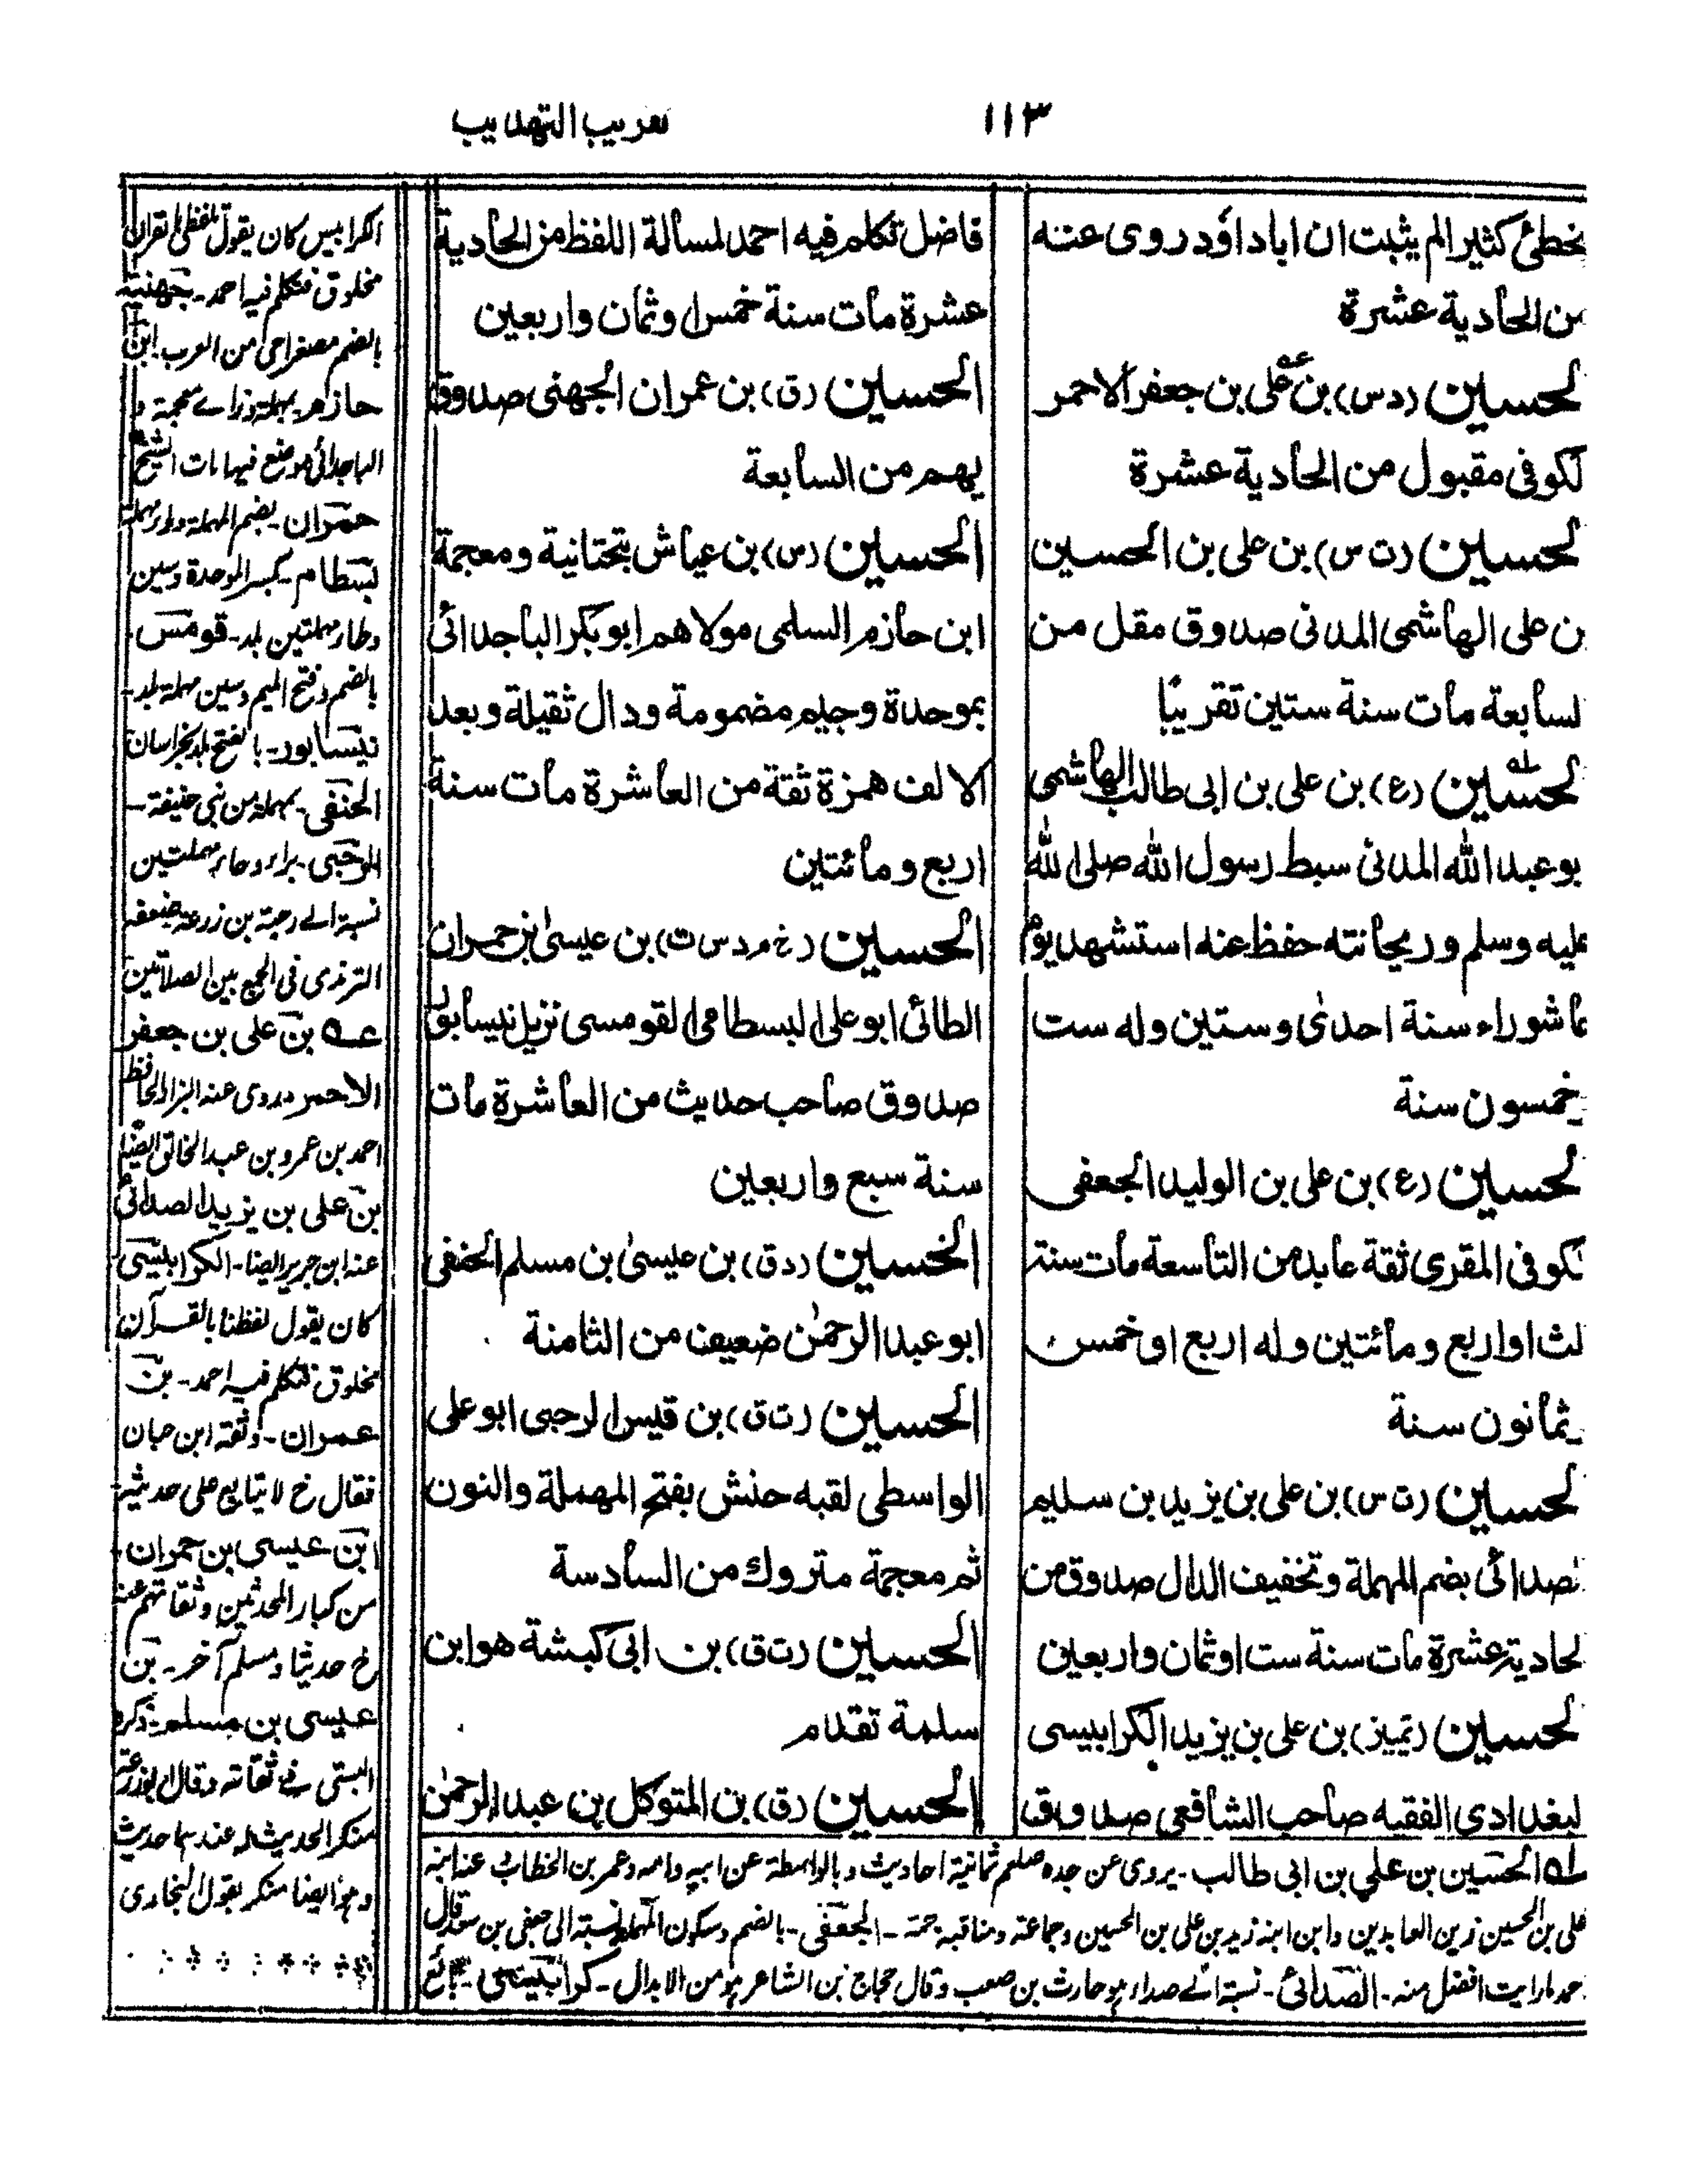 ١١٣
تقريب التهذيب
يخطئ كثيرا لم يثبت ان ابا داؤد روى عنه
من الحادية عشرة
لحسين (د س) بن على بن جعفر الاحمر
لكوفى مقبول من الحادية عشرة
لحسين (ت س) بن على بن الحسين
بن على الهاشمى المدنى صدوق مقل من
لسابعة مات سنة ستين تقريبًا
لحسين (ع) بن على بن ابى طالب الهاشمى
بو عبد الله المدنى سبط رسول الله صلى الله
عليه وسلم وريحانته حفظ عنه استشهد يوم
عاشوراء سنة احدى وستين وله ست
خمسون سنة
لحسين (ع) بن على بن الوليد الجعفى
لكوفى المقرى ثقة عابد من التاسعة مات سنة
لث او اربع ومائتين وله اربع او خمس
ثمانون سنة
لحسين (ت س) بن على بن يزيد بن سليم
لصدائى بضم المهملة وتخفيف الدال صدوق من
لحادية عشرة مات سنة ست او ثمان واربعين
لحسين (تمييز) بن على بن يزيد الكرابيسى
لبغدادى الفقيه صاحب الشافعى صدوق
فاضل تكلم فيه احمد لمسألة اللفظ من الحادية
عشرة مات سنة خمس او ثمان واربعين
الحسين (ق) بن عمران الجهنى صدوق
يهم من السابعة
الحسين (س) بن عياش بتحتانية ومعجمة
ابن حازم السلمى مولاهم ابو بكر الباجدائى
بموحدة وجيم مضمومة ودال ثقيلة وبعد
الالف همزة ثقة من العاشرة مات سنة
اربع ومائتين
الحسين (خ م د س ت) بن عيسى بن حمران
الطائى ابو على البسطامى القومسى نزيل نيسابور
صدوق صاحب حديث من العاشرة مات
سنة سبع واربعين
الحسين (د ق) بن عيسى بن مسلم الحنفى
ابو عبد الرحمن ضعيف من الثامنة
الحسين (ت ق) بن قيس الرحبى ابو على
الواسطى لقبه حنش بفتح المهملة والنون
ثم معجمة متروك من السادسة
الحسين (ت ق) بن ابى كبشة هو ابن
سلمة تقدم
الحسين (ق) بن المتوكل بن عبد الرحمن
الكرابيس كان يقول لفظى بالقران
مخلوق فتكلم فيه احمد۔ جهنية
بالضم مصغرا حى من العرب ابن
حازم بمهملة وزاے معجمة و
الباجدائى موضع فيها مات الشيخ
حمران۔ بضم المهملة وراء مهملة
بسطام۔ بكسر الموحدة وسين
وطاء مهملتين بلد۔ قومس
بالضم وفتح الميم وسين مهملة بلد۔
نيسابور۔ بالفتح بلد بخراسان
الحنفى۔ بمهملة من بنى حنيفة۔
الرحبى۔ براء وحاء مهملتين
نسبة الے رحبة بن زرعة ضعفه
الترمذى فى الجمع بين الصلاتين
عه بن على بن جعفر
الاحمر وروى عنه البزار الحافظ
احمد بن عمرو بن عبد الخالق ايضا
بن على بن يزيد الصدائى
عنه ابن جرير ايضا۔ الكرابيسى
كان يقول لفظنا بالقرآن
مخلوق فتكلم فيه احمد۔ بن
عمران۔ وثقه ابن حبان
فقال خ لا يتابع على حديثه
ابن عيسى بن حمران۔
من كبار المحدثين وثقاتهم عنه
خ حديثا ومسلم آخر۔ بن
عيسى بن مسلم۔ ذكره
البستى فے ثقاته وقال ابو زرعة
منكر الحديث له عندهما حديث
وهو ايضا منكر بقول البخارى
له الحسين بن علي بن ابى طالب۔ يروى عن جده صلعم ثمانية احاديث وبالواسطة عن ابيه وامه وعمر بن الخطاب عنه ابنه
على بن الحسين زين العابدين وابن ابنه زيد بن على بن الحسين وجماعة ومناقبه جمة۔ الجعفى۔ بالضم وسكون المهملة نسبة الى جعفى بن سعد قال
حمد ما رايت افضل منه۔ الصدائى۔ نسبة الے صداء هو حارث بن صعب وقال حجاج بن الشاعر هو من الابدال۔ كرابيسى۔ بائع